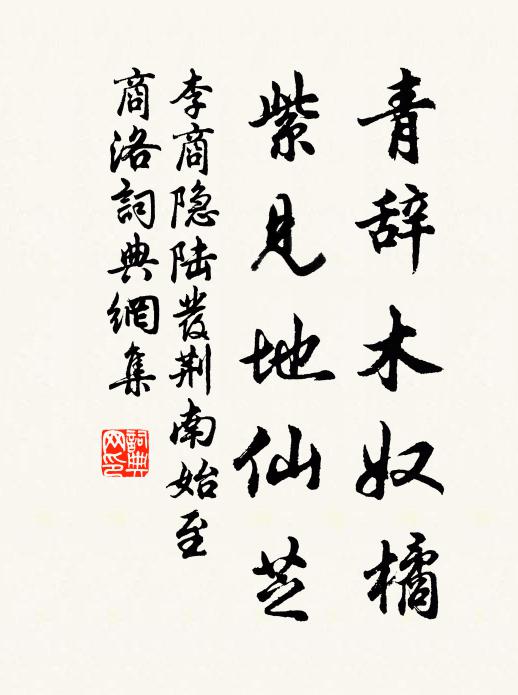 青辞木奴橘
紫见地仙芝
李商隐陆发荆南始至
商洛詞典網集
詞典网印